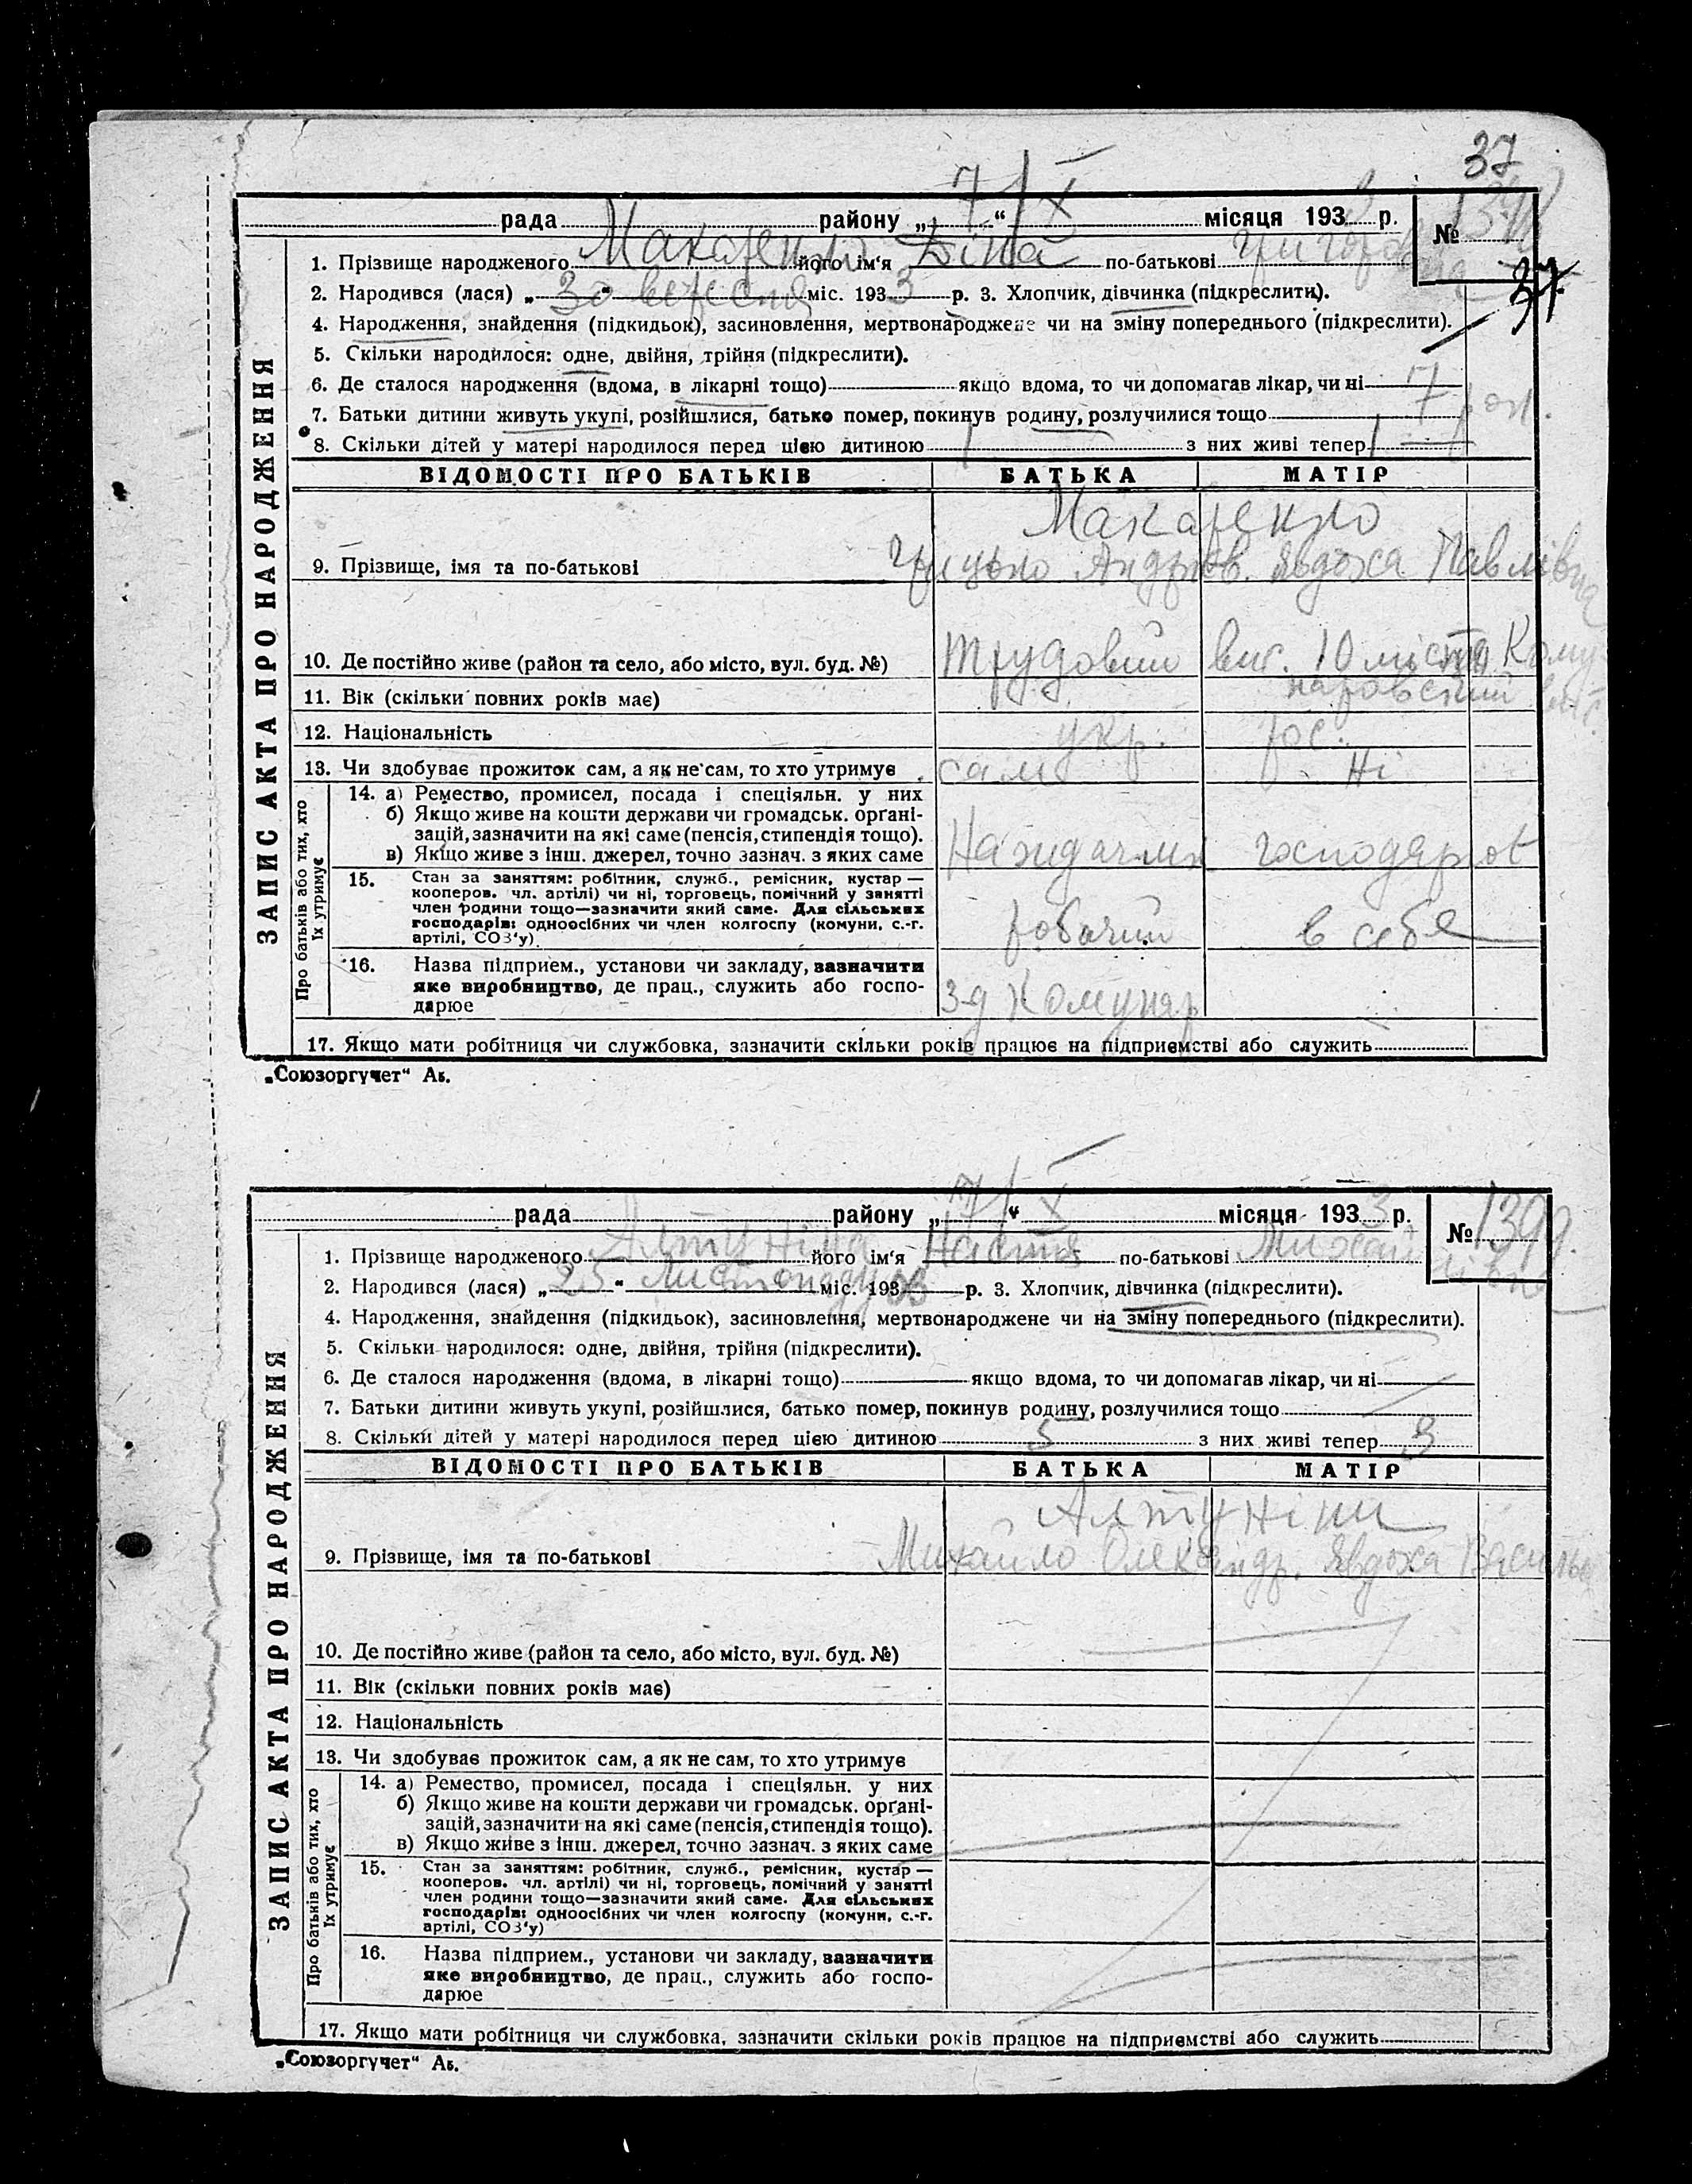 37
7/X
рада района „ “ місяця 193 р.
№ 1398
1. Прізвище народженого Макаренко його ім‘я Діна по-батькові Григорівна
37
2. Народився (лася) „30“ вересня міс. 1933 р. 3. Хлопчик, дівчинка (підкреслити).
4. Народження, знайдення (підкидьок), засиновлення, мертвонароджене чи на зміну попереднього (підкреслити).
5. Скільки народилося: одне, двійня, трійня (підкреслити).
6. Де сталося народження (вдома, в лікарні тощо) якщо вдома, то чи допомагав лікар, чи ні
7. Батьки дитини живуть укупі, розійшлися, батько помер, покинув родину, розлучилися тощо
7
8. Скільки дітей у матері народилося перед цією дитиною 1 з них живі тепер 1
ЗАПИС АКТА ПРО НАРОДЖЕННЯ
ВІДОМОСТІ ПРО БАТЬКІВ БАТЬКА МАТІР
Макаренко
9. Прізвище, імя та по-батькові Грицько Андрієв. Явдоха Павлівна
10. Де постійно живе (район та село, або місто, вул. буд. №) Трудовий вис. 10
11. Вік (скільки повних років має)
12. Національність укр. рос.
13. Чи здобуває прожиток сам, а як не сам, то хто утримує сам ні
Про батьків або тих, хто їх утримує
14. а) Ремество, промисел, посада і спеціяльн. у них
б) Якщо живе на кошти держави чи громадськ. орґані-
зацій, зазначити на які саме (пенсія, стипендія тощо).
в) Якщо живе з інш. джерел, точно зазнач. з яких саме Наждачник господар
15. Стан за заняттям: робітник, служб., ремісник, кустар —
кооперов. чл. артілі) чи ні, торговець, помічний у занятті
член родини тощо—зазначити який саме. Для сільських
господарів: одноосібних чи член колгоспу (комуни, с.-г.
артілі, СОЗ‘у). робочий в себе
16. Назва підприєм., установи чи закладу, зазначити
яке виробництво, де прац., служить або госпо-
дарює з-д Комунар
17. Якщо мати робітниця чи службовка, зазначити скільки років працює на підприємстві або служить
„Союзоргучет“ Аь.
7/X
рада району „ “ місяця 1933 р.
№ 1399.
1. Прізвище народженого Алтуніна його ім‘я Настя по-батькові Михайлівна
2. Народився (лася) „25“ листопаду міс. 193 р. 3. Хлопчик, дівчинка (підкреслити).
4. Народження, знайдення (підкидьок), засиновлення, мертвонароджене чи на зміну попереднього (підкреслити).
5. Скільки народилося: одне, двійня, трійня (підкреслити).
6. Де сталося народження (вдома, в лікарні тощо) якщо вдома, то чи допомагав лікар, чи ні
7. Батьки дитини живуть укупі, розійшлися, батько помер, покинув родину, розлучилися тощо
8. Скільки дітей у матері народилося перед цією дитиною 5 з них живі тепер 3
ЗАПИС АКТА ПРО НАРОДЖЕННЯ
ВІДОМОСТІ ПРО БАТЬКІВ БАТЬКА МАТІР
Алтуніни
9. Прізвище, імя та по-батькові Михайло Олександр. Явдоха
10. Де постійно живе (район та село, або місто, вул. буд. №)
11. Вік (скільки повних років має)
12. Національність
13. Чи здобуває прожиток сам, а як не сам, то хто утримує
Про батьків або тих, хто їх утримує
14. а) Ремество, промисел, посада і спеціяльн. у них
б) Якщо живе на кошти держави чи громадськ. орґані-
зацій, зазначити на які саме (пенсія, стипендія тощо).
в) Якщо живе з інш. джерел, точно зазнач. з яких саме
15. Стан за заняттям: робітник, служб., ремісник, кустар —
кооперов. чл. артілі) чи ні, торговець, помічний у занятті
член родини тощо—зазначити який саме. Для сільських
господарів: одноосібних чи член колгоспу (комуни, с.-г.
артілі, СОЗ‘у)
16. Назва підприєм., установи чи закладу, зазначити
яке виробництво, де прац., служить або госпо-
дарює
17. Якщо мати робітниця чи службовка, зазначити скільки років працює на підприємстві або служить
„Союзоргучет“ Аь.